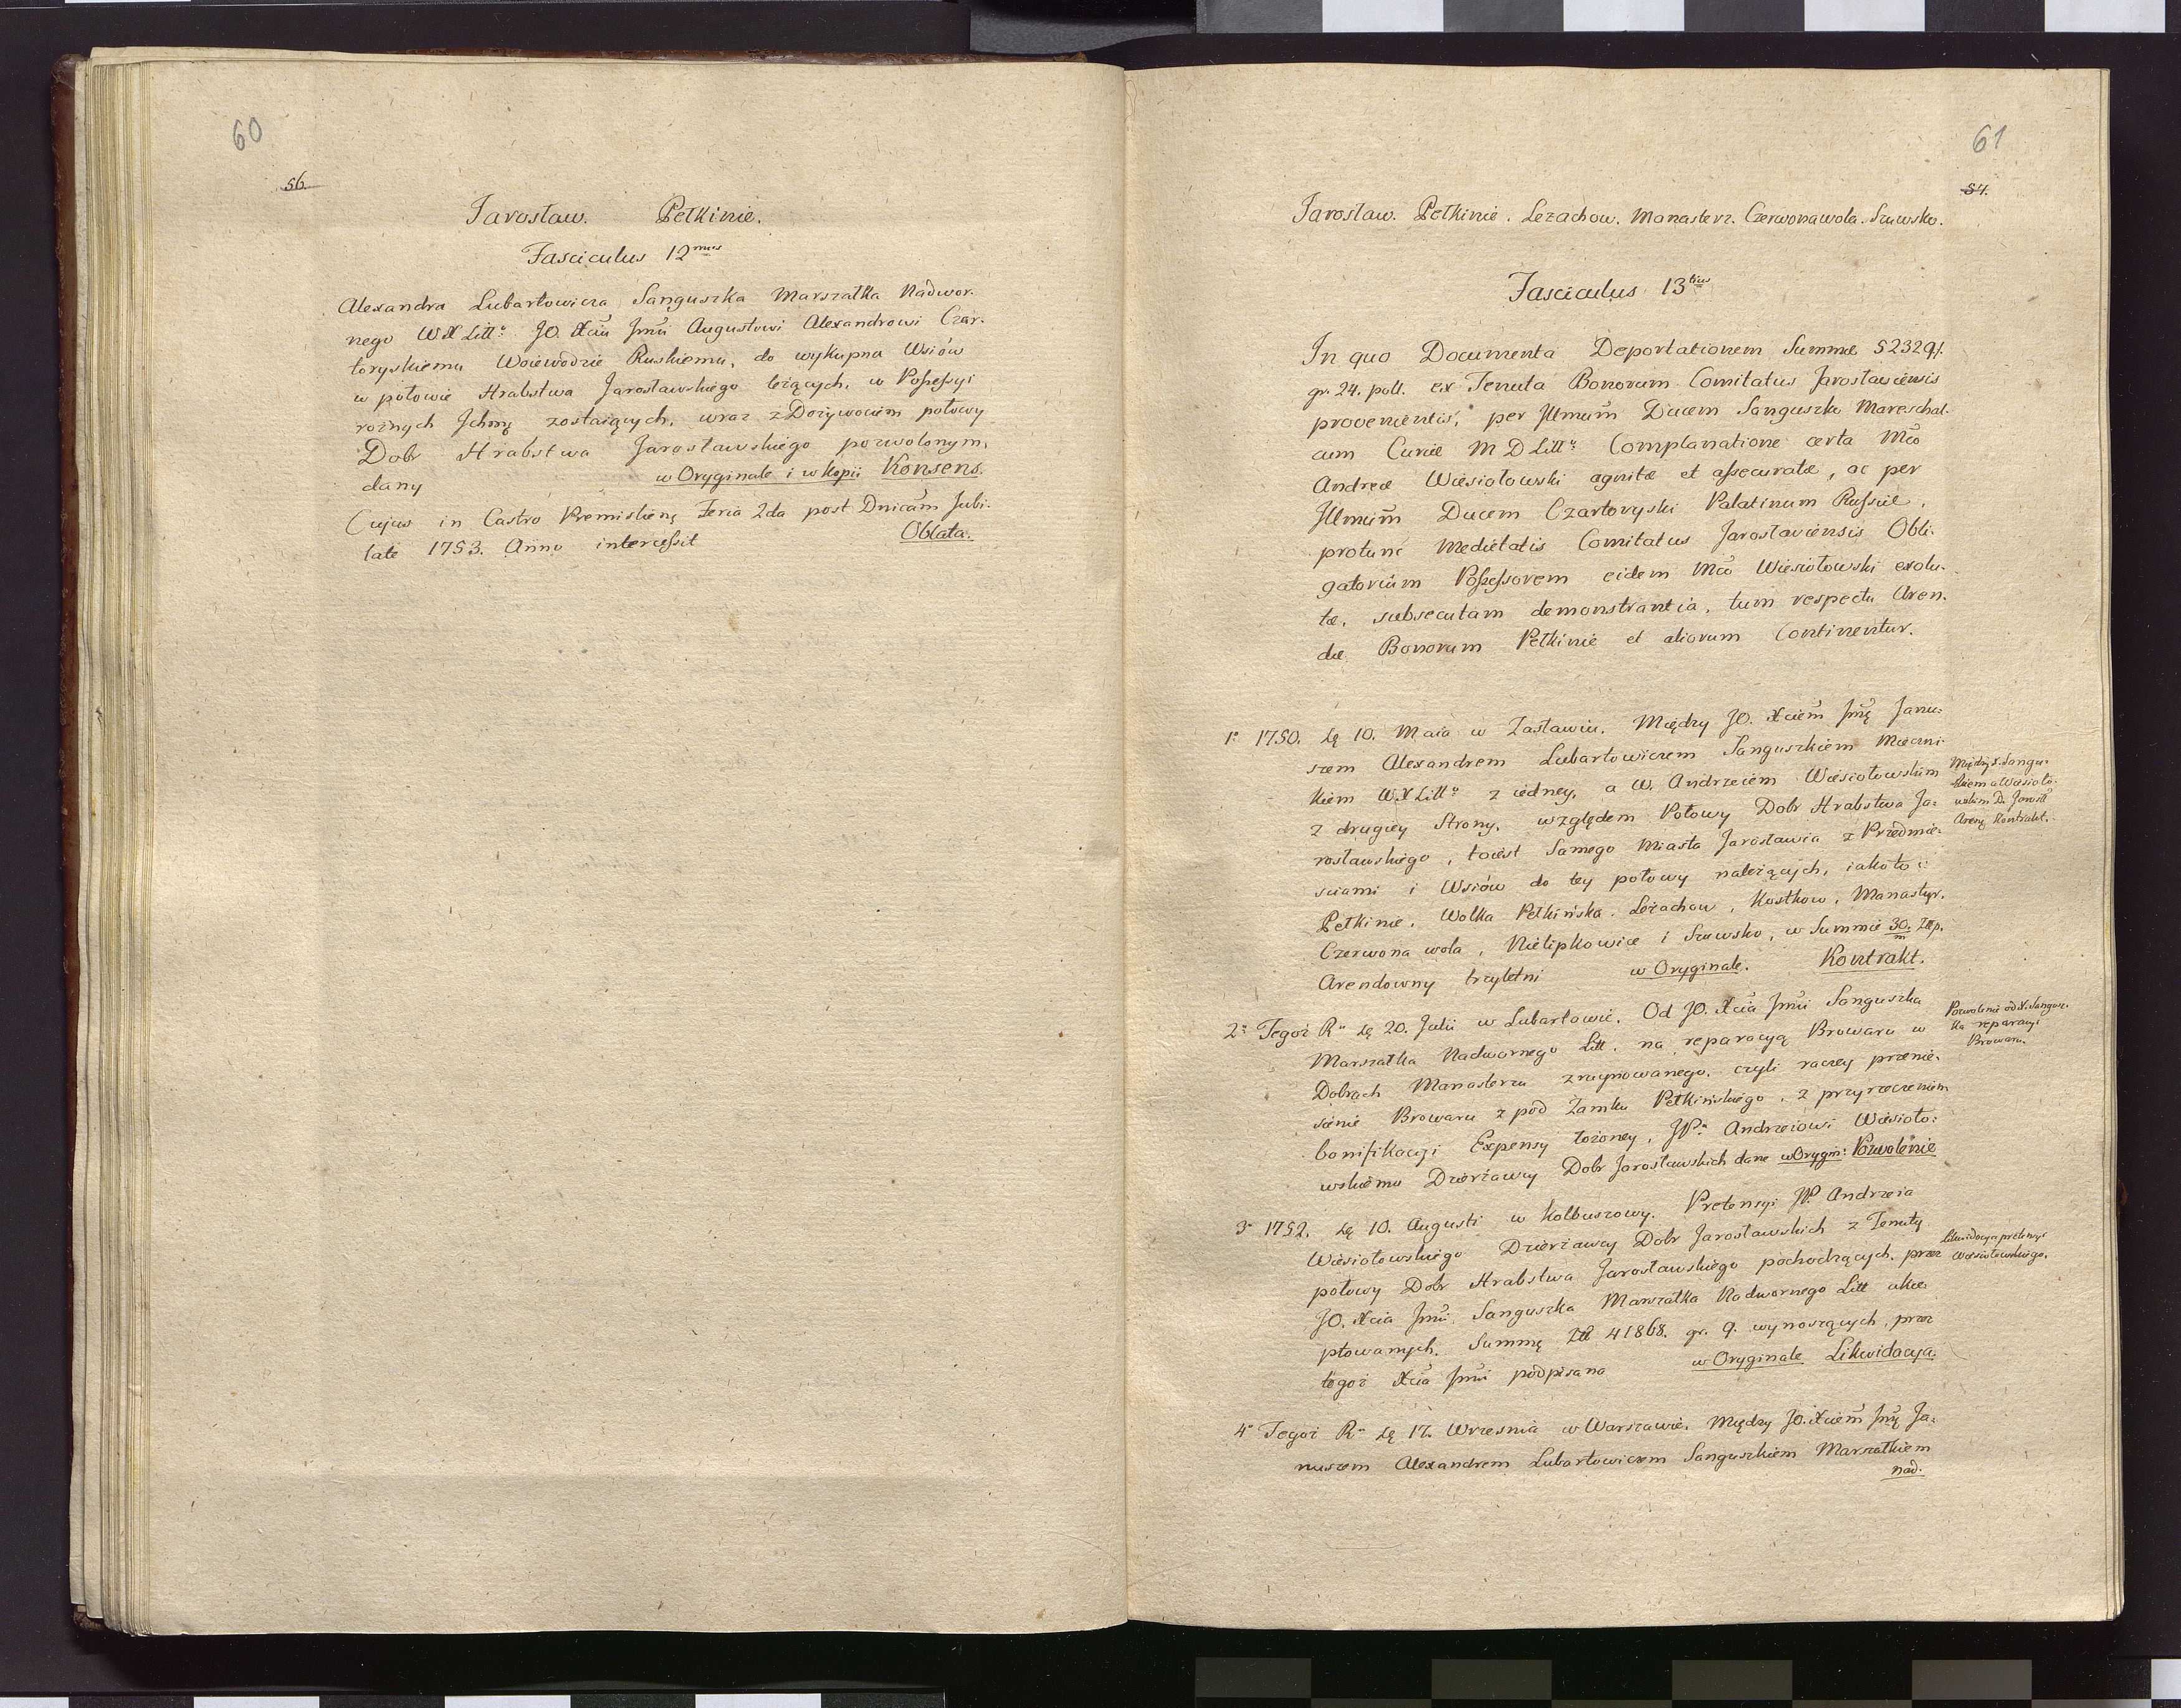 60
56.
Jarosław. Pełkinie.
Fasciculus 12mus
Alexandra Lubartowicza Sanguszka Marszałka Nadwor.
nego WX Litt: JO. Xciu Jmći Augustowi Alexandrowi Czar.
toryskiemu Woiewodzie Ruskiemu, do wykupna Wsiów
w połowie Hrabstwa Jarosławskiego leżących, w Possessyi
rożnych Jchmę zostaiących, wraz z Dożywociem połowy
Dobr Hrabstwa Jarosławskiego pozwolonym,
dany w Oryginale i w kopii Konsens.
Cujus in Castro Premislienę Feria 2da post Dnicam Jubi.
late 1753. Anno intercessit Oblata.
61
54.
Jarosław. Pełkinie. Lezachow. Manasterz. Czerwonawola. Szuwsko.
Fasciculus 13tius
In quo Documenta Deportationem Summæ 52329f.
gr. 24. poll. ex Tenuta Bonorum Comitatus Jaroslawiensis
provenientis, per Jllmum Ducem Sanguszko Mareschal.
cum Curiæ M D Litt: Complanatione certa Mco
Andreæ Wiesiołowski agnitæ et assecuratæ, ac per
Jllmum Ducem Czartoryski Palatinum Russiæ,
protunc Medietatis Comitatus Jaroslaviensis Obli.
gatorium Possessorem eidem Mco Wiesiołowski exolu.
tæ, subsecutam demonstrantia, tum respectu Aren.
dæ Bonorum Pełkinie et aliorum Continentur.
1o 1750. dę 10. Maia w Zasławiu. Między JO. Xciem Jmę Janu:
szem Alexandrem Lubartowiczem Sanguszkiem Mieczni
kiem WX Litt: z iedney, a W. Andrzeiem Wiesiołowskim
z drugiey Strony, względem Połowy Dobr Hrabstwa Ja:
rosławskiego, toiest Samego Miasta Jarosławia z Przedmie.
sciami i Wsiów do tey połowy należących, iakoto:
Pełkinie, Wolka Pełkińska, Leżachow, Kostkow, Manastyr.
Czerwona wola, Nielipkowice i Szuwsko, w Summie 30. m Złp.
Arendowny trzyletni w Oryginale. Kontrakt.
Między X. Sangu.
szkiem a Wiesioło.
wskim D. Jarosł
Areny Kontrakt.
2o Tegoż Ru dę 20. Julii w Lubartowie. Od JO. Xcia Jmći Sanguszka
Marszałka Nadwornego Litt. na reparacyą Browaru w
Dobrach Manasterzu zruynowanego, czyli raczey przenie.
sienie Browaru z pod Zamku Pełkińskiego, z przyrzeczeniem
bonifikacyi Expensy łożoney, JP. Andrzeiowi Wiesioło:
wskiemu Dzierżawcy Dobr Jarosławskich dane w Orygin: Pozwolenie
Pozwolenie od X. Sangusz.
ka reparacyi
Browaru.
3o 1752. dę 10. Augusti w Kolbuszowy. Pretensyi JP. Andrzeia
Wiesiołowskiego Dzierżawcy Dobr Jarosławskich z Tenuty
połowy Dobr Hrabstwa Jarosławskiego pochodzących, przez
JO. Xcia Jmći Sanguszka Marszałka Nadwornego Litt akce.
ptowanych, Summę Złł 41868. gr. 9. wynoszących, przez
tegoż Xcia Jmći podpisana w Oryginale Likwidacya.
Likwidacya pretensyi
Wiesiołowskiego.
4o Tegoż Ru dę 17. Wrzesnia w Warszawie. Między JO. Xciem Jmę Ja:
nuszem Alexandrem Lubartowiczem Sanguszkiem Marszałkiem
nad.